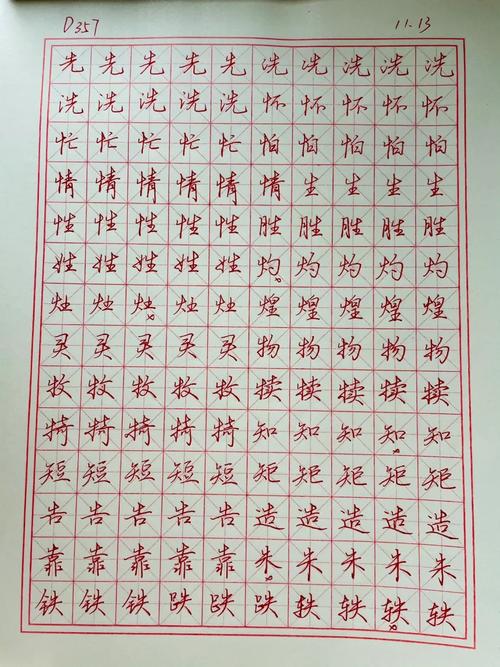 D357 11.13
先先先先先洗洗洗洗洗
洗洗洗洗洗怀怀怀怀怀
忙忙忙忙忙怕怕怕怕怕
情情情情情情生生生生
性性性性性胜胜胜胜胜
姓姓姓姓姓灼灼灼灼灼
灶灶灶灶灶煌煌煌煌煌
灵灵灵灵灵物物物物物
牧牧牧牧牧犊犊犊犊犊
犄犄犄犄犄知知知知知
短短短短短矩矩矩矩矩
告告告告告造造造造造
靠靠靠靠靠朱朱朱朱朱
铁铁铁跌跌跌轶轶轶轶